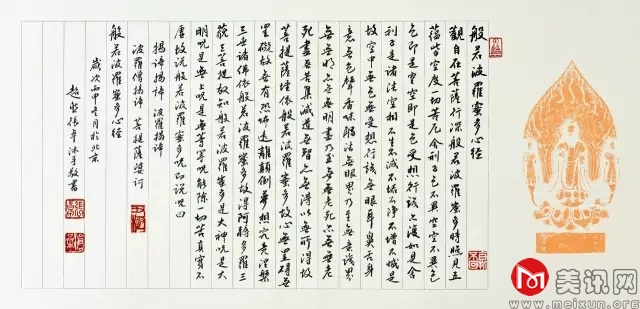 般若波羅蜜多心経
觀自在菩薩行深般若波羅蜜多時照見五
蘊皆空度一切苦厄舍利子色不異空空不異色
色即是空空即是色受想行識亦復如是舍
利子是諸法空相不生不滅不垢不淨不增不減是
故空中無色無受想行識無眼耳鼻舌身
意無色聲香味觸法無眼界乃至無意識界
無無明亦無無明盡乃至無老死亦無老
死盡無苦集滅道無智亦無得以無所得故
菩提薩埵依般若波羅蜜多故心無罣礙無
罣礙故無有恐怖遠離顛倒夢想究竟涅槃
三世諸佛依般若波羅蜜多故得阿耨多羅三
藐三菩提故知般若波羅蜜多是大神咒是大
明咒是無上咒是無等等咒能除一切苦真實不
虛故說般若波羅蜜多咒即說咒曰
揭諦揭諦 波羅揭諦
波羅僧揭諦 菩提薩婆訶
般若波羅蜜多心経
歲次丙申月於北京
張卓沐手敬書
美讯网
www.meixun.org